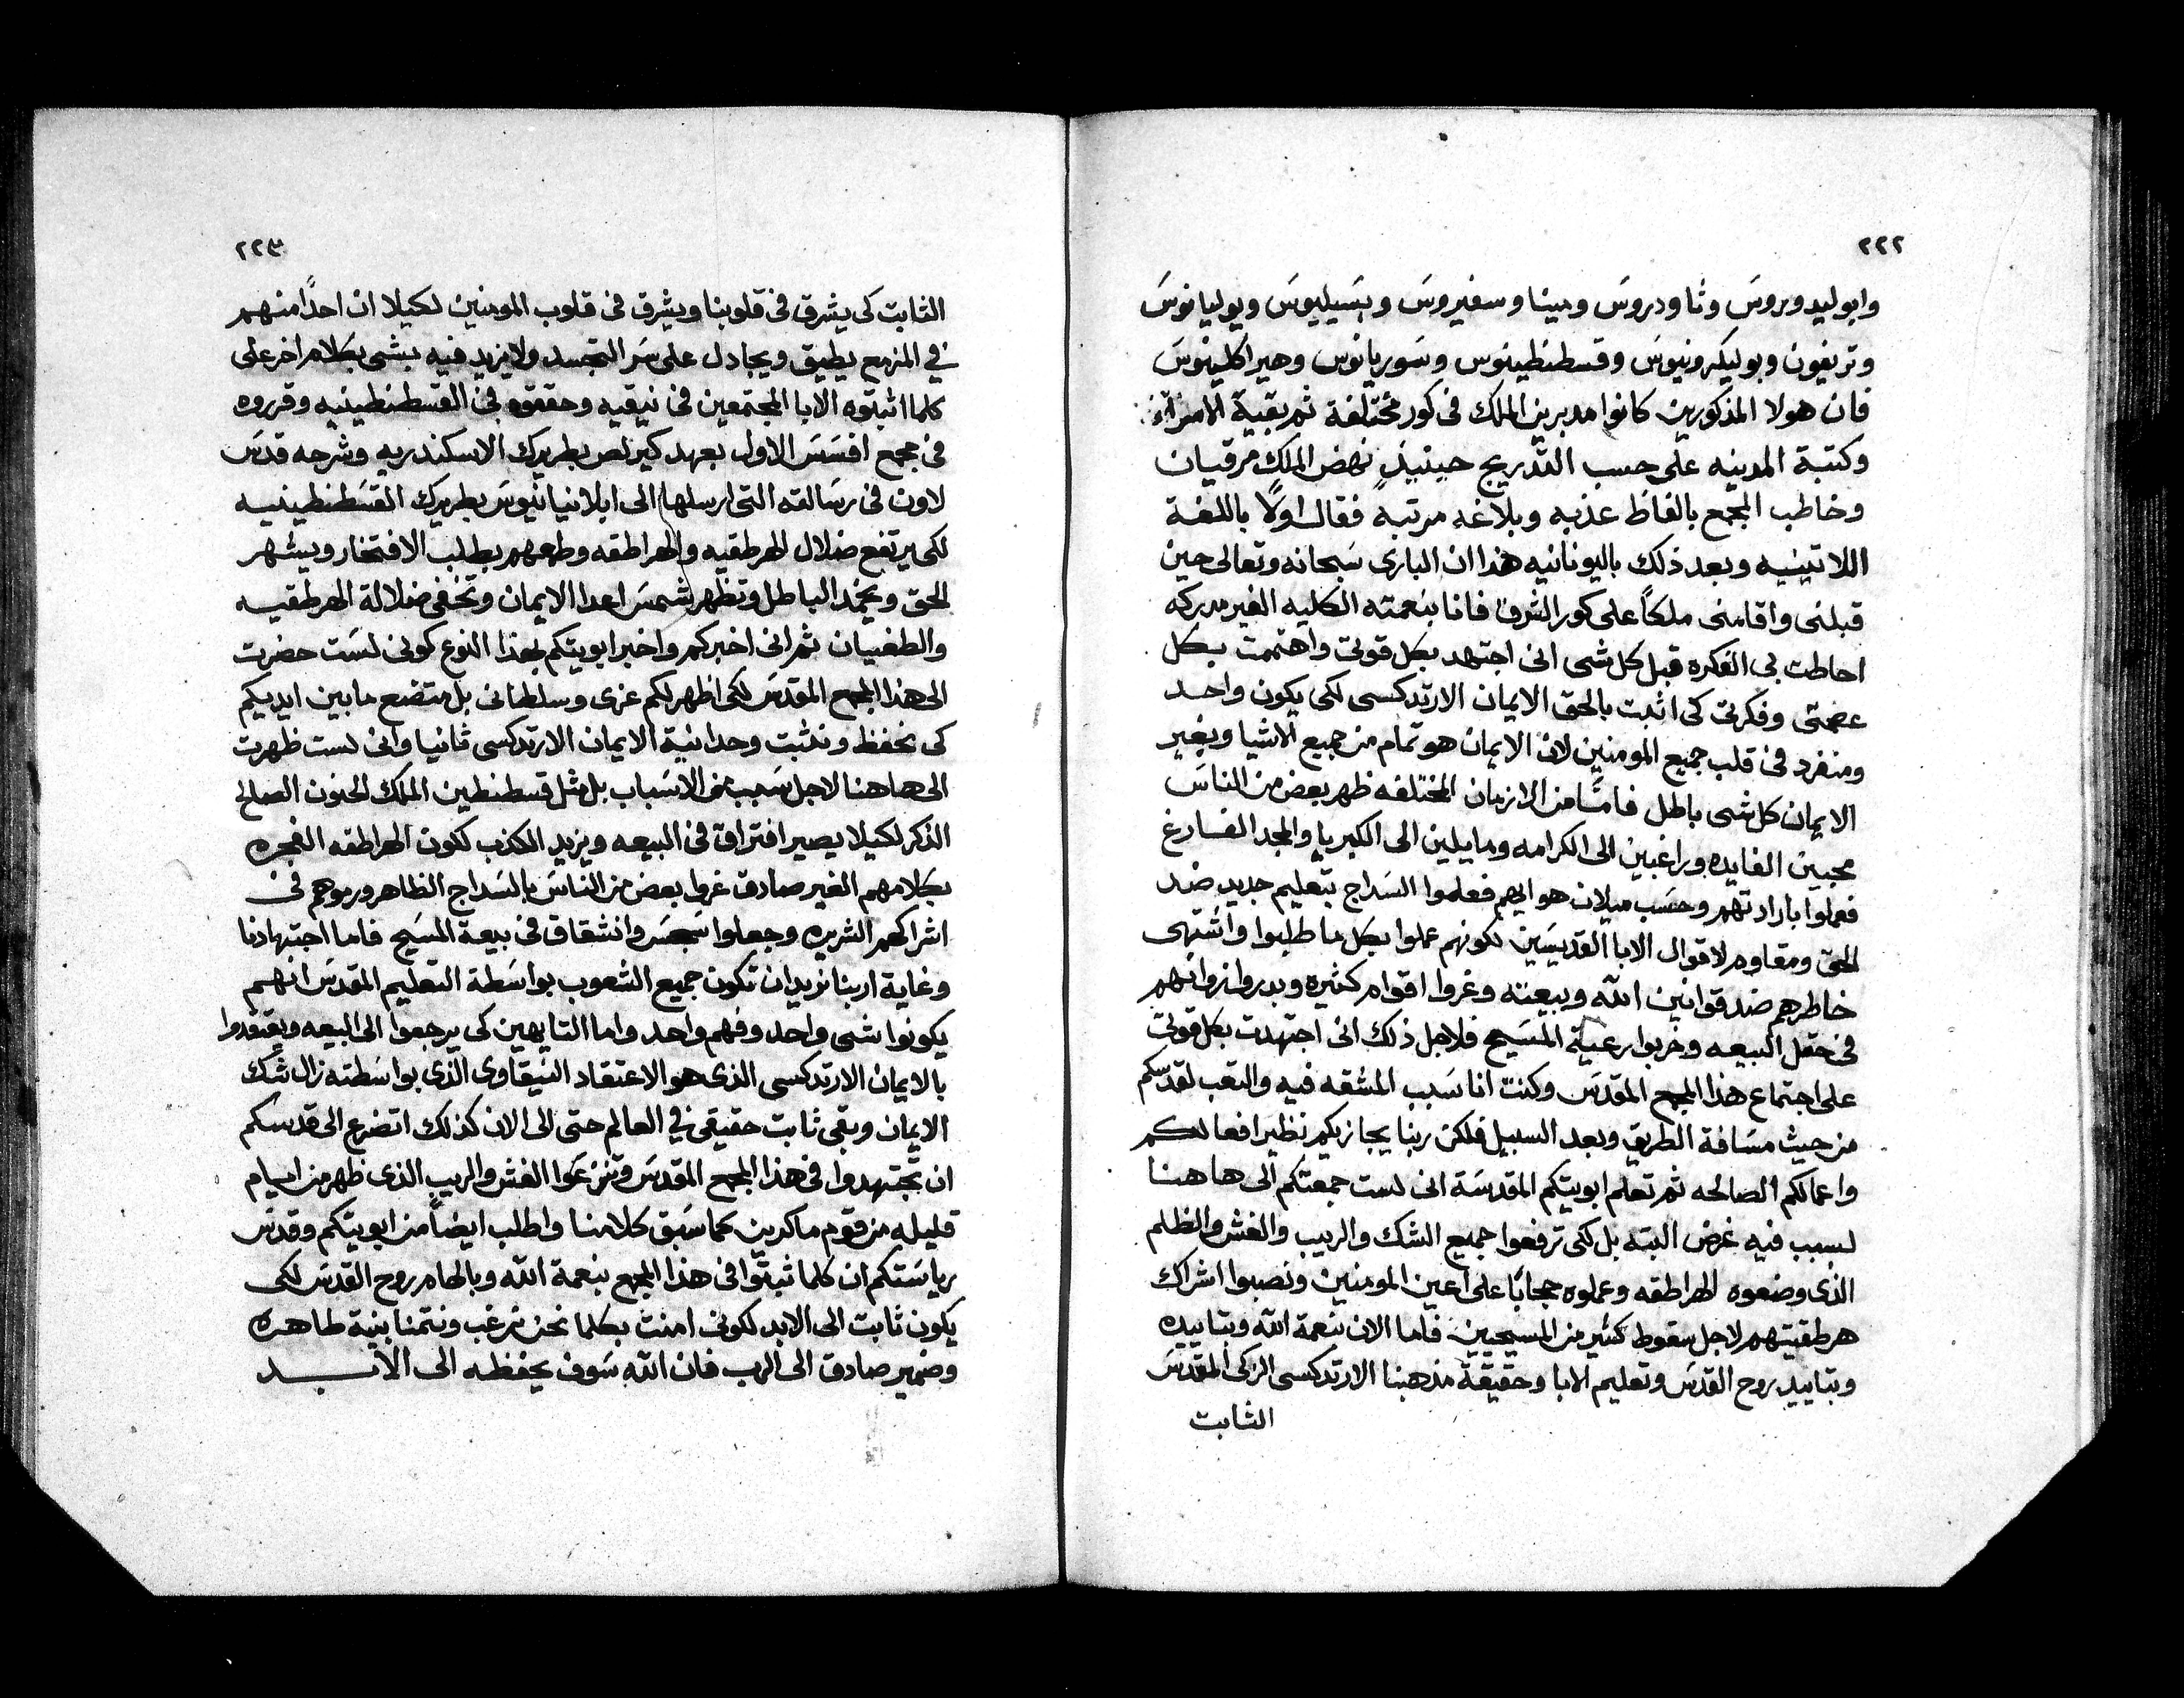 ٢٢٢
وابوليدوروس وثاودروس ومينا وسفيروس وبسيليوس ويوليانوس
وتريفون وبوليكرونيوس وقسطنطينوس وسوريانوس وهيراكلينوس
فان هولا المذكورين كانوا مدبرين الملك فى كور مختلفة ثم بقية الامراء
وكتبة المدينه على حسب التدريج حينيذٍ نهض الملك مرقيان
وخاطب المجمع بالفاظ عذبه وبلاغه مرتبه فقال اولًا باللغة
اللاتينيه وبعد ذلك باليونانيه هذا ان البارى سبحانه وتعالى حين
قبلنى واقامنى ملكًا على كور الشرق فانا بنعمته الكليه الغير مدركه
احاطت بى الفكره قبل كل شى انى اجتهد بكل قوتى واهتممت بكل
عصمتى وفكرتى كى اثبت بالحق الايمان الارتدكسى لكى يكون واحد
ومنفرد فى قلب جميع المومنين لان الايمان هو تمام من جميع الاشيا وبغير
الايمان كل شى باطل فامًا من الازمان المختلفه ظهر بعض من الناس
محبين الفايده وراغبين الى الكرامه ومايلين الى الكبريا والمجد الفارغ
فعملوا بارادتهم وحسب ميلان هوايهم فعلموا السداج بتعليم جديد ضد
الحق ومقاوم لاقوال الابا القديسين لكونهم عملوا بكل ما طلبوا واشتهى
خاطرهم ضد قوانين الله وبيعته وغروا اقوام كثيره وبدروا زوانهم
فى حقل البيعه وخربوا رعية المسيح فلاجل ذلك انى اجتهدت بكل قوتى
على اجتماع هذا المجمع المقدس وكنت انا سبب المشقه فيه والتعب لقدسكم
من حيث مسافة الطريق وبعد السبيل فلكن ربنا يجازيكم نظير افعالكم
واعمالكم الصالحه ثم تعلم ابويتكم المقدسة انى لست جمعتكم الى هاهنا
لسبب فيه غرض البته بل لكى ترفعوا جميع الشك والريب والغش والظلم
الذى وضعوه الهراطقه وعملوه حجابًا على اعين المومنين ونصبوا اشراك
هرطقيتهم لاجل سقوط كثير من المسيحيين فاما الان بنعمة الله وبتاييده
وبتاييد روح القدس وتعليم الابا وحقيقة مذهبنا الارتدكسى الزكى المقدس
الثابت
٢٢٣
الثابت كى يشرق فى قلوبنا ويشرق فى قلوب المومنين لكيلا ان احدًا منهم
فى المزمع يطيق ويجادل على سر التجسد ولا يزيد فيه بشى بكلام اخر على
كلما اثبتوه الابا المجتمعين فى نيقيه وحققوه فى القسطنطينيه وقرروه
فى مجمع افسس الاول بعهد كيرلص بطريرك الاسكندريه وشرحه قدس
لاون فى رسالته التى ارسلها الى ابلانيانيوس بطريرك القسطنطينيه
لكى يرتفع ضلال الهرطقيه والهراطقه وطمعهم بطلب الافتخار ويشهر
الحق ويخمد الباطل وتظهر شمس اعدا الايمان وتختفى ضلالة الهرطقيه
والطغيان ثم انى اخبركم واخبر ابويتكم بهذا النوع كونى لست حضرت
الى هذا المجمع المقدس لكى اظهر لكم عزى وسلطانى بل متضع ما بين ايديكم
كى نحفظ ونثبت وحدانية الايمان الارتدكسى ثانيا وانى لست ظهرت
الى هاهنا لاجل سبب من الاسباب بل مثل قسطنطين الملك الحنون الصالح
الذكر لكيلا يصير افتراق فى البيعه ويزيد الكذب لكون الهراطقه الفجره
بكلامهم الغير صادق غروا بعض من الناس بالسداج الظاهر ورموهم فى
اشراكهم الشريره وجعلوا سجس وانشقاق فى بيعة المسيح فاما اجتهادنا
وغاية اربنا نريد ان تكون جميع الشعوب بواسطة التعليم المقدس انهم
يكونوا شى واحد وفهم واحد واما التايهين كى يرجعوا الى البيعه ويعتقدوا
بالايمان الارتدكسى الذى هو الاعتقاد النيقاوى الذى بواسطته زال شك
الايمان وبقى ثابت حقيقى فى العالم حتى الى الان كذلك اتضرع الى قدسكم
ان تجتهدوا فى هذا المجمع المقدس وتنزعوا الغش والريب الذى ظهر من ايام
قليله من قوم ماكرين كما سبق كلامنا واطلب ايضًا من ابويتكم وقدس
رياستكم ان كلما ثبتوا فى هذا المجمع بنعمة الله وبالهام روح القدس لكى
يكون ثابت الى الابد لكونى امنت بكلما نحن نرغب ونتمنا بنية طاهره
وضمير صادق الى الرب فان الله سوف يحفظه الى الابد